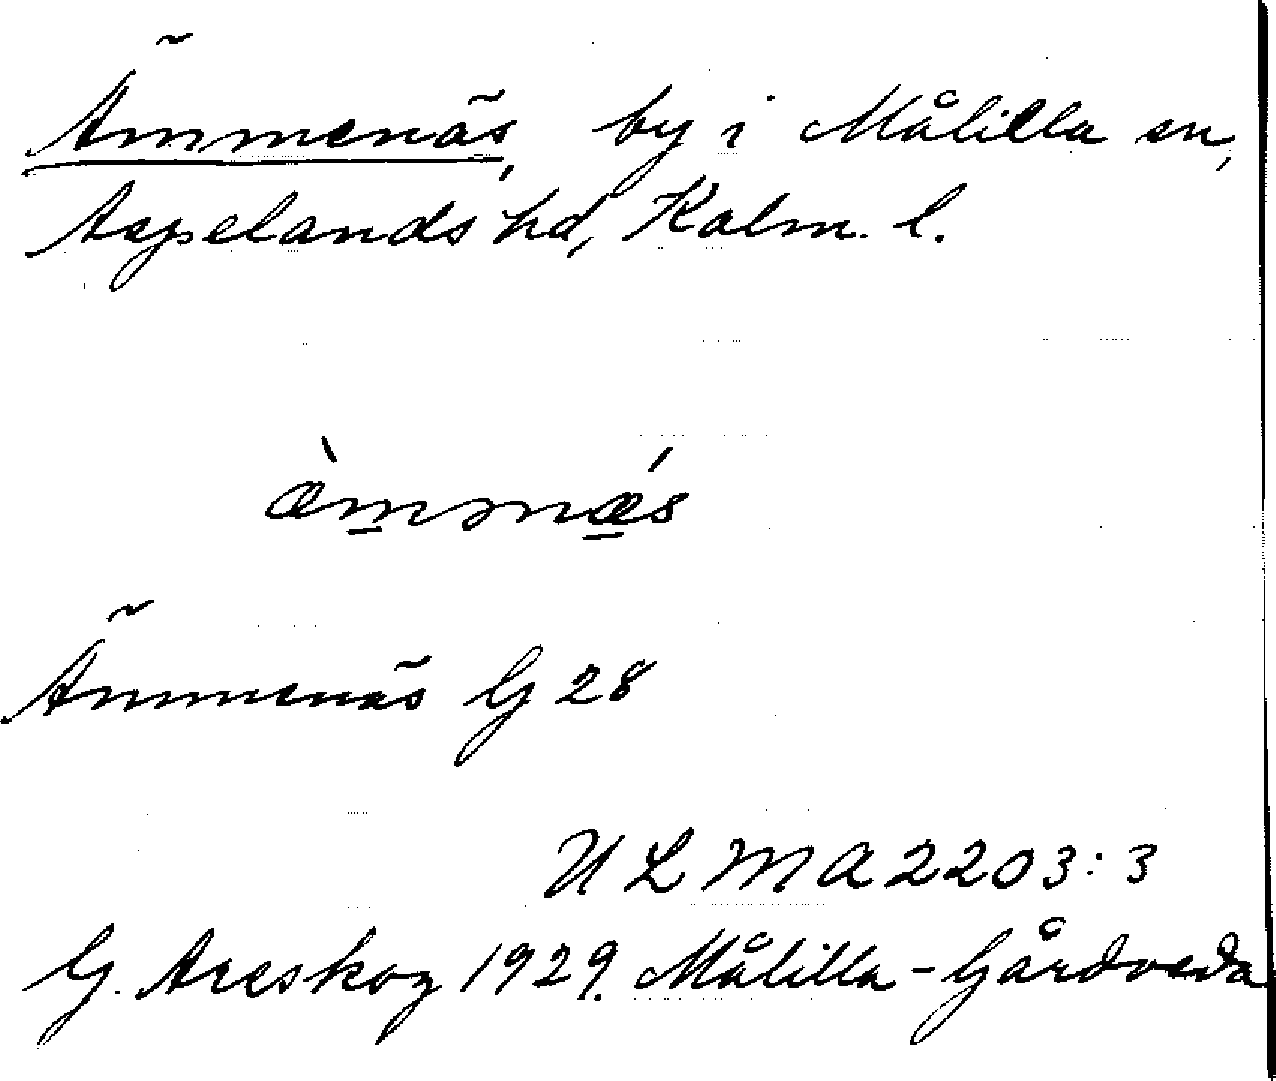 Ämmenäs, by i Målilla sn,
Aspelands hd, Kalm. l.
æ̀m̲ənǽ̲s
Ämmenäs G 28
ULMA 2203:3
G. Areskog 1929. Målilla-Gårdveda